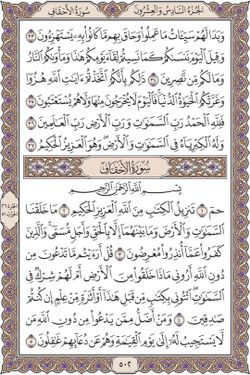 الجُزْءُ السَّادِسُ وَالعِشْرُونَ سُورَةُ الأَحْقَافِ
وَبَدَا لَهُمْ سَيِّـَٔاتُ مَا عَمِلُوا۟ وَحَاقَ بِهِم مَّا كَانُوا۟ بِهِۦ يَسْتَهْزِءُونَ ٣٣
وَقِيلَ ٱلْيَوْمَ نَنسَىٰكُمْ كَمَا نَسِيتُمْ لِقَآءَ يَوْمِكُمْ هَٰذَا وَمَأْوَىٰكُمُ ٱلنَّارُ
وَمَا لَكُم مِّن نَّٰصِرِينَ ٣٤ ذَٰلِكُم بِأَنَّكُمُ ٱتَّخَذْتُمْ ءَايَٰتِ ٱللَّهِ هُزُوًا
وَغَرَّتْكُمُ ٱلْحَيَوٰةُ ٱلدُّنْيَا ۚ فَٱلْيَوْمَ لَا يُخْرَجُونَ مِنْهَا وَلَا هُمْ يُسْتَعْتَبُونَ ٣٥
فَلِلَّهِ ٱلْحَمْدُ رَبِّ ٱلسَّمَٰوَٰتِ وَرَبِّ ٱلْأَرْضِ رَبِّ ٱلْعَٰلَمِينَ ٣٦
وَلَهُ ٱلْكِبْرِيَآءُ فِى ٱلسَّمَٰوَٰتِ وَٱلْأَرْضِ ۖ وَهُوَ ٱلْعَزِيزُ ٱلْحَكِيمُ ٣٧
سُورَةُ الأَحْقَافِ
بِسْمِ ٱللَّهِ ٱلرَّحْمَٰنِ ٱلرَّحِيمِ
حمٓ ١ تَنزِيلُ ٱلْكِتَٰبِ مِنَ ٱللَّهِ ٱلْعَزِيزِ ٱلْحَكِيمِ ٢ مَا خَلَقْنَا
ٱلسَّمَٰوَٰتِ وَٱلْأَرْضَ وَمَا بَيْنَهُمَآ إِلَّا بِٱلْحَقِّ وَأَجَلٍ مُّسَمًّى ۚ وَٱلَّذِينَ
كَفَرُوا۟ عَمَّآ أُنذِرُوا۟ مُعْرِضُونَ ٣ قُلْ أَرَءَيْتُم مَّا تَدْعُونَ مِن
دُونِ ٱللَّهِ أَرُونِى مَاذَا خَلَقُوا۟ مِنَ ٱلْأَرْضِ أَمْ لَهُمْ شِرْكٌ فِى
ٱلسَّمَٰوَٰتِ ۖ ٱئْتُونِى بِكِتَٰبٍ مِّن قَبْلِ هَٰذَآ أَوْ أَثَٰرَةٍ مِّنْ عِلْمٍ إِن كُنتُمْ
صَٰدِقِينَ ٤ وَمَنْ أَضَلُّ مِمَّن يَدْعُوا۟ مِن دُونِ ٱللَّهِ مَن
لَّا يَسْتَجِيبُ لَهُۥٓ إِلَىٰ يَوْمِ ٱلْقِيَٰمَةِ وَهُمْ عَن دُعَآئِهِمْ غَٰفِلُونَ ٥
٥٠٢